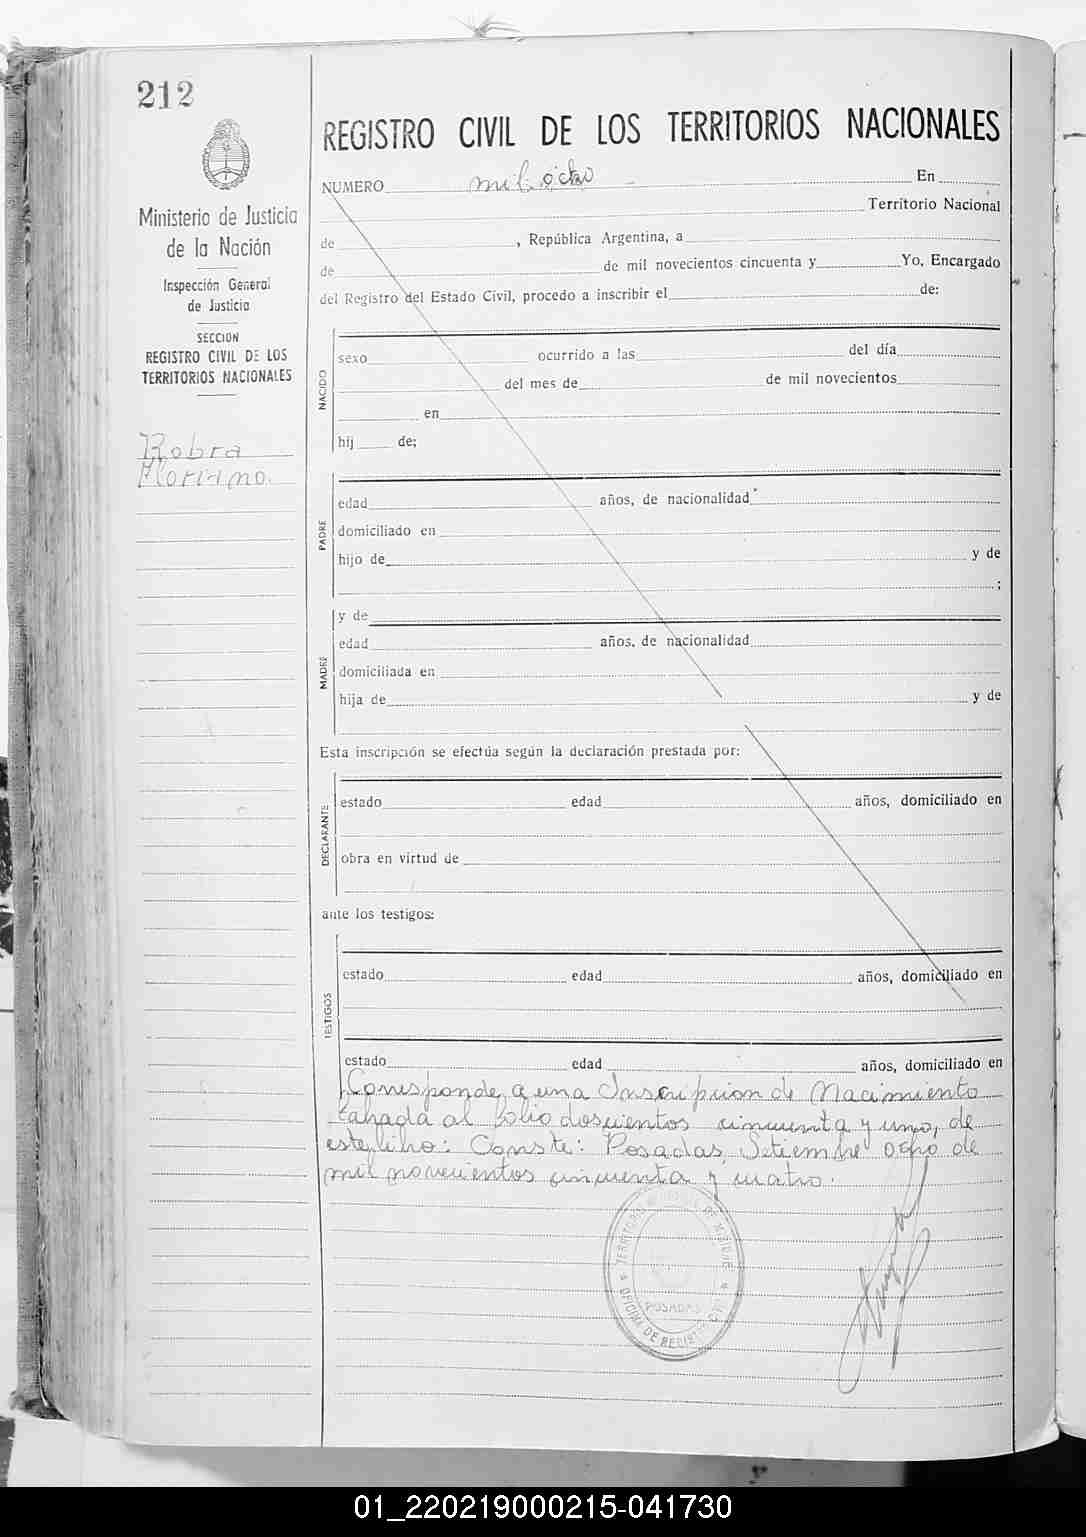 212
REGISTRO CIVIL DE LOS TERRITORIOS NACIONALES
NUMERO mil ocho En
Territorio Nacional
de , República Argentina, a
de de mil novecientos cincuenta y Yo, Encargado
del Registro del Estado Civil, procedo a inscribir el de:
Ministerio de Justicia
de la Nación
Inspección General
de Justicia
SECCION
REGISTRO CIVIL DE LOS
TERRITORIOS NACIONALES
Robra
NACIDO
sexo ocurrido a las del día
del mes de de mil novecientos
en
hij de;
PADRE
edad años, de nacionalidad
domiciliado en
hijo de y de
;
MADRE
y de
edad años, de nacionalidad
domiciliada en
hija de y de
Esta inscripción se efectúa según la declaración prestada por:
DECLARANTE
estado edad años, domiciliado en
obra en virtud de
ante los testigos:
TESTIGOS
estado edad años, domiciliado en
estado edad años, domiciliado en
Corresponde a una Inscripcion de Nacimiento
al folio doscientos cincuenta y uno, de
este libro: Conste: Posadas, Setiembre ocho de
mil novecientos cincuenta y cuatro.
POSADAS
01_220219000215-041730